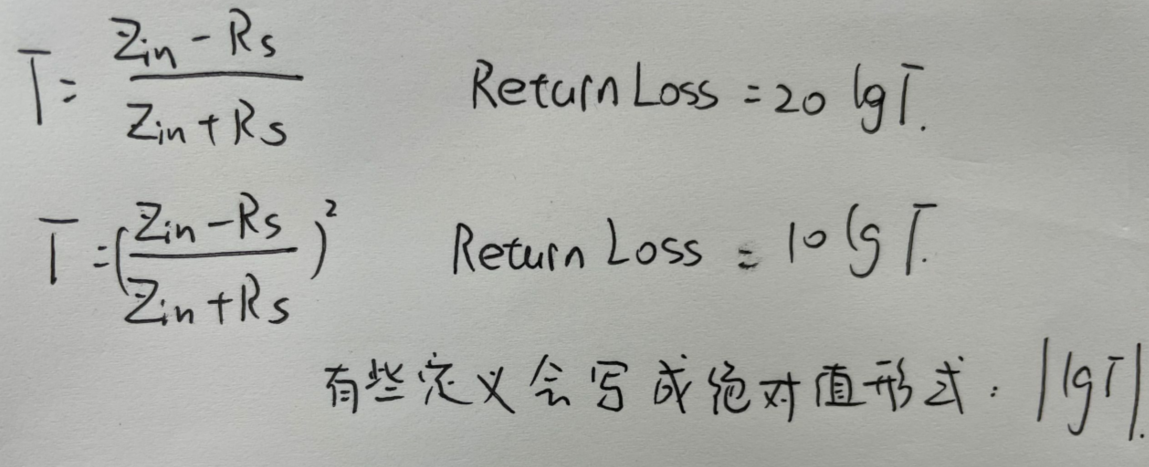 Γ = (Zin - Rs) / (Zin + Rs) Return Loss = 20 lgΓ.
Γ = ((Zin - Rs) / (Zin + Rs))² Return Loss = 10 lgΓ.
有些定义会写成绝对值形式：|lgΓ|.